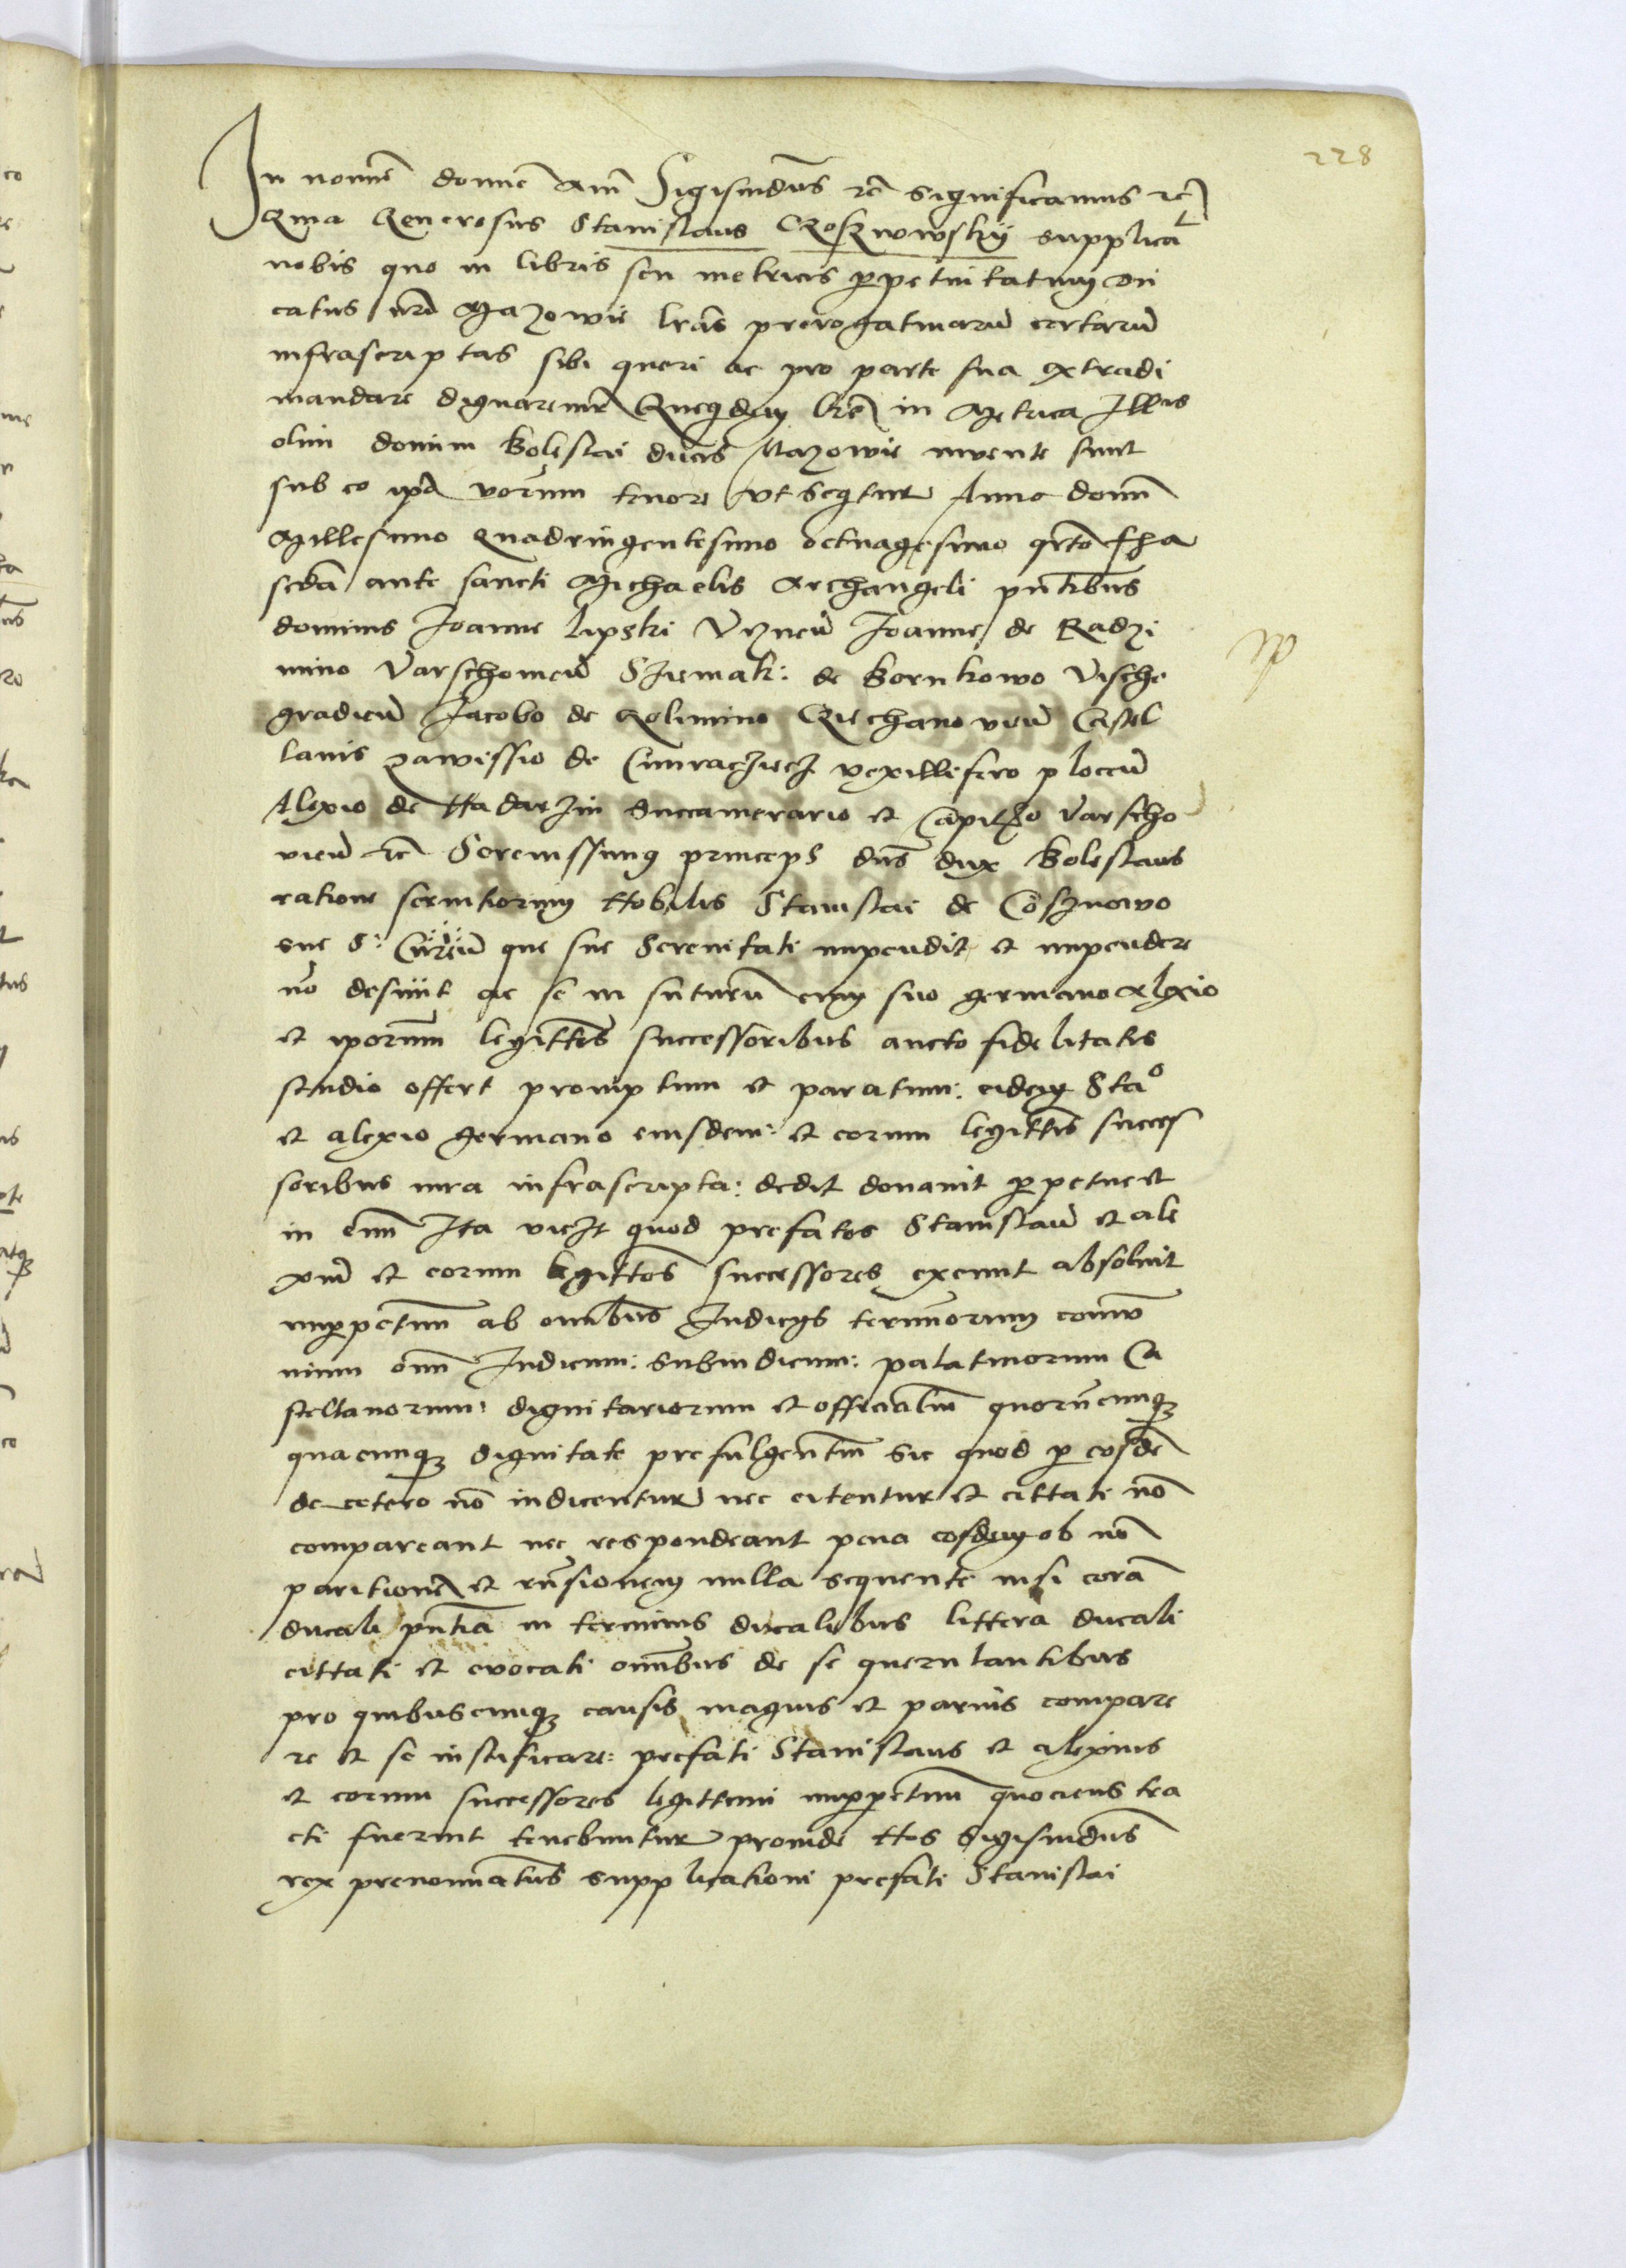 228
In nomine domine Amen Sigismundus etc significamus etc
Quia Generosus Stanislaus Cosznowskÿ supplicat
nobis quo in libris seu metricis perpetuitatum Du
catus nri Mazowie lras prerogatiuarum certarum
infrascriptas sibi queri ac pro parte sua extradi
mandare dignaremur Quequidem lre in Metrica Illris
olim domini Boleslai ducis Mazowie invente sunt
sub eo verborum tenore vt sequitur Anno domini
Millesimo Quadringentesimo octuagesimo quarto fria
scda ante sancti Michaelis Archangeli pntibus
dominis Joanne lipski Viznen Joanne de Radzi
mino Varschouien Sziemak: de Bornkowo Vische
gradien Jacobo de Golimino Ciechanouien Castel
lanis Zawissio de vexillifero plocen
Alexio de Nadarzin Succamerario et Capitaneo Varscho
vien etc Serenissimus princeps dns dux Boleslaus
ratione seruitiorum Nobilis Stanislai de Cosznowo
sue S: que sue Serenitati impendit et impendere
no desiuit ac se in futurum cum suo germano Alexio
et iporum legittimis successoribus aucto fidelitatis
studio offert promptum et paratum: eidem Stao
et alexio germano eiusdem: et eorum legittimis succes
soribus iura infrascripta: dedit donauit perpetue et
in eum Ita vicz quod prefatos Stanislaum et ale
xium et eorum legittimos successores exemit absoluit
imperpetuum ab omnibus Iudicys terminorum commu
nium omnium Iudicum: Subiudicum: palatinorum Ca
stellanorum: dignitariorum et officialium quorumcunque
quacunque dignitate prefulgentium sic quod per eosdem
de cetero non iudicentur nec citentur et cittati non
compareant nec respondeant pena eosdem ob non
paritionem et rnsionem nulla sequente nisi coram
ducali pntia in terminis ducalibus littera ducali
cittati et evocati omnibus de se querulantibus
pro quibuscunque causis magnis et paruis compare
re et se iustificare: prefati Stanislaus et alexius
et eorum successores legittimi imperpetuum quociens tra
cti fuerint tenebuntur proinde Nos Sigismundus
rex prenominatus supplicationi prefati Stanislai